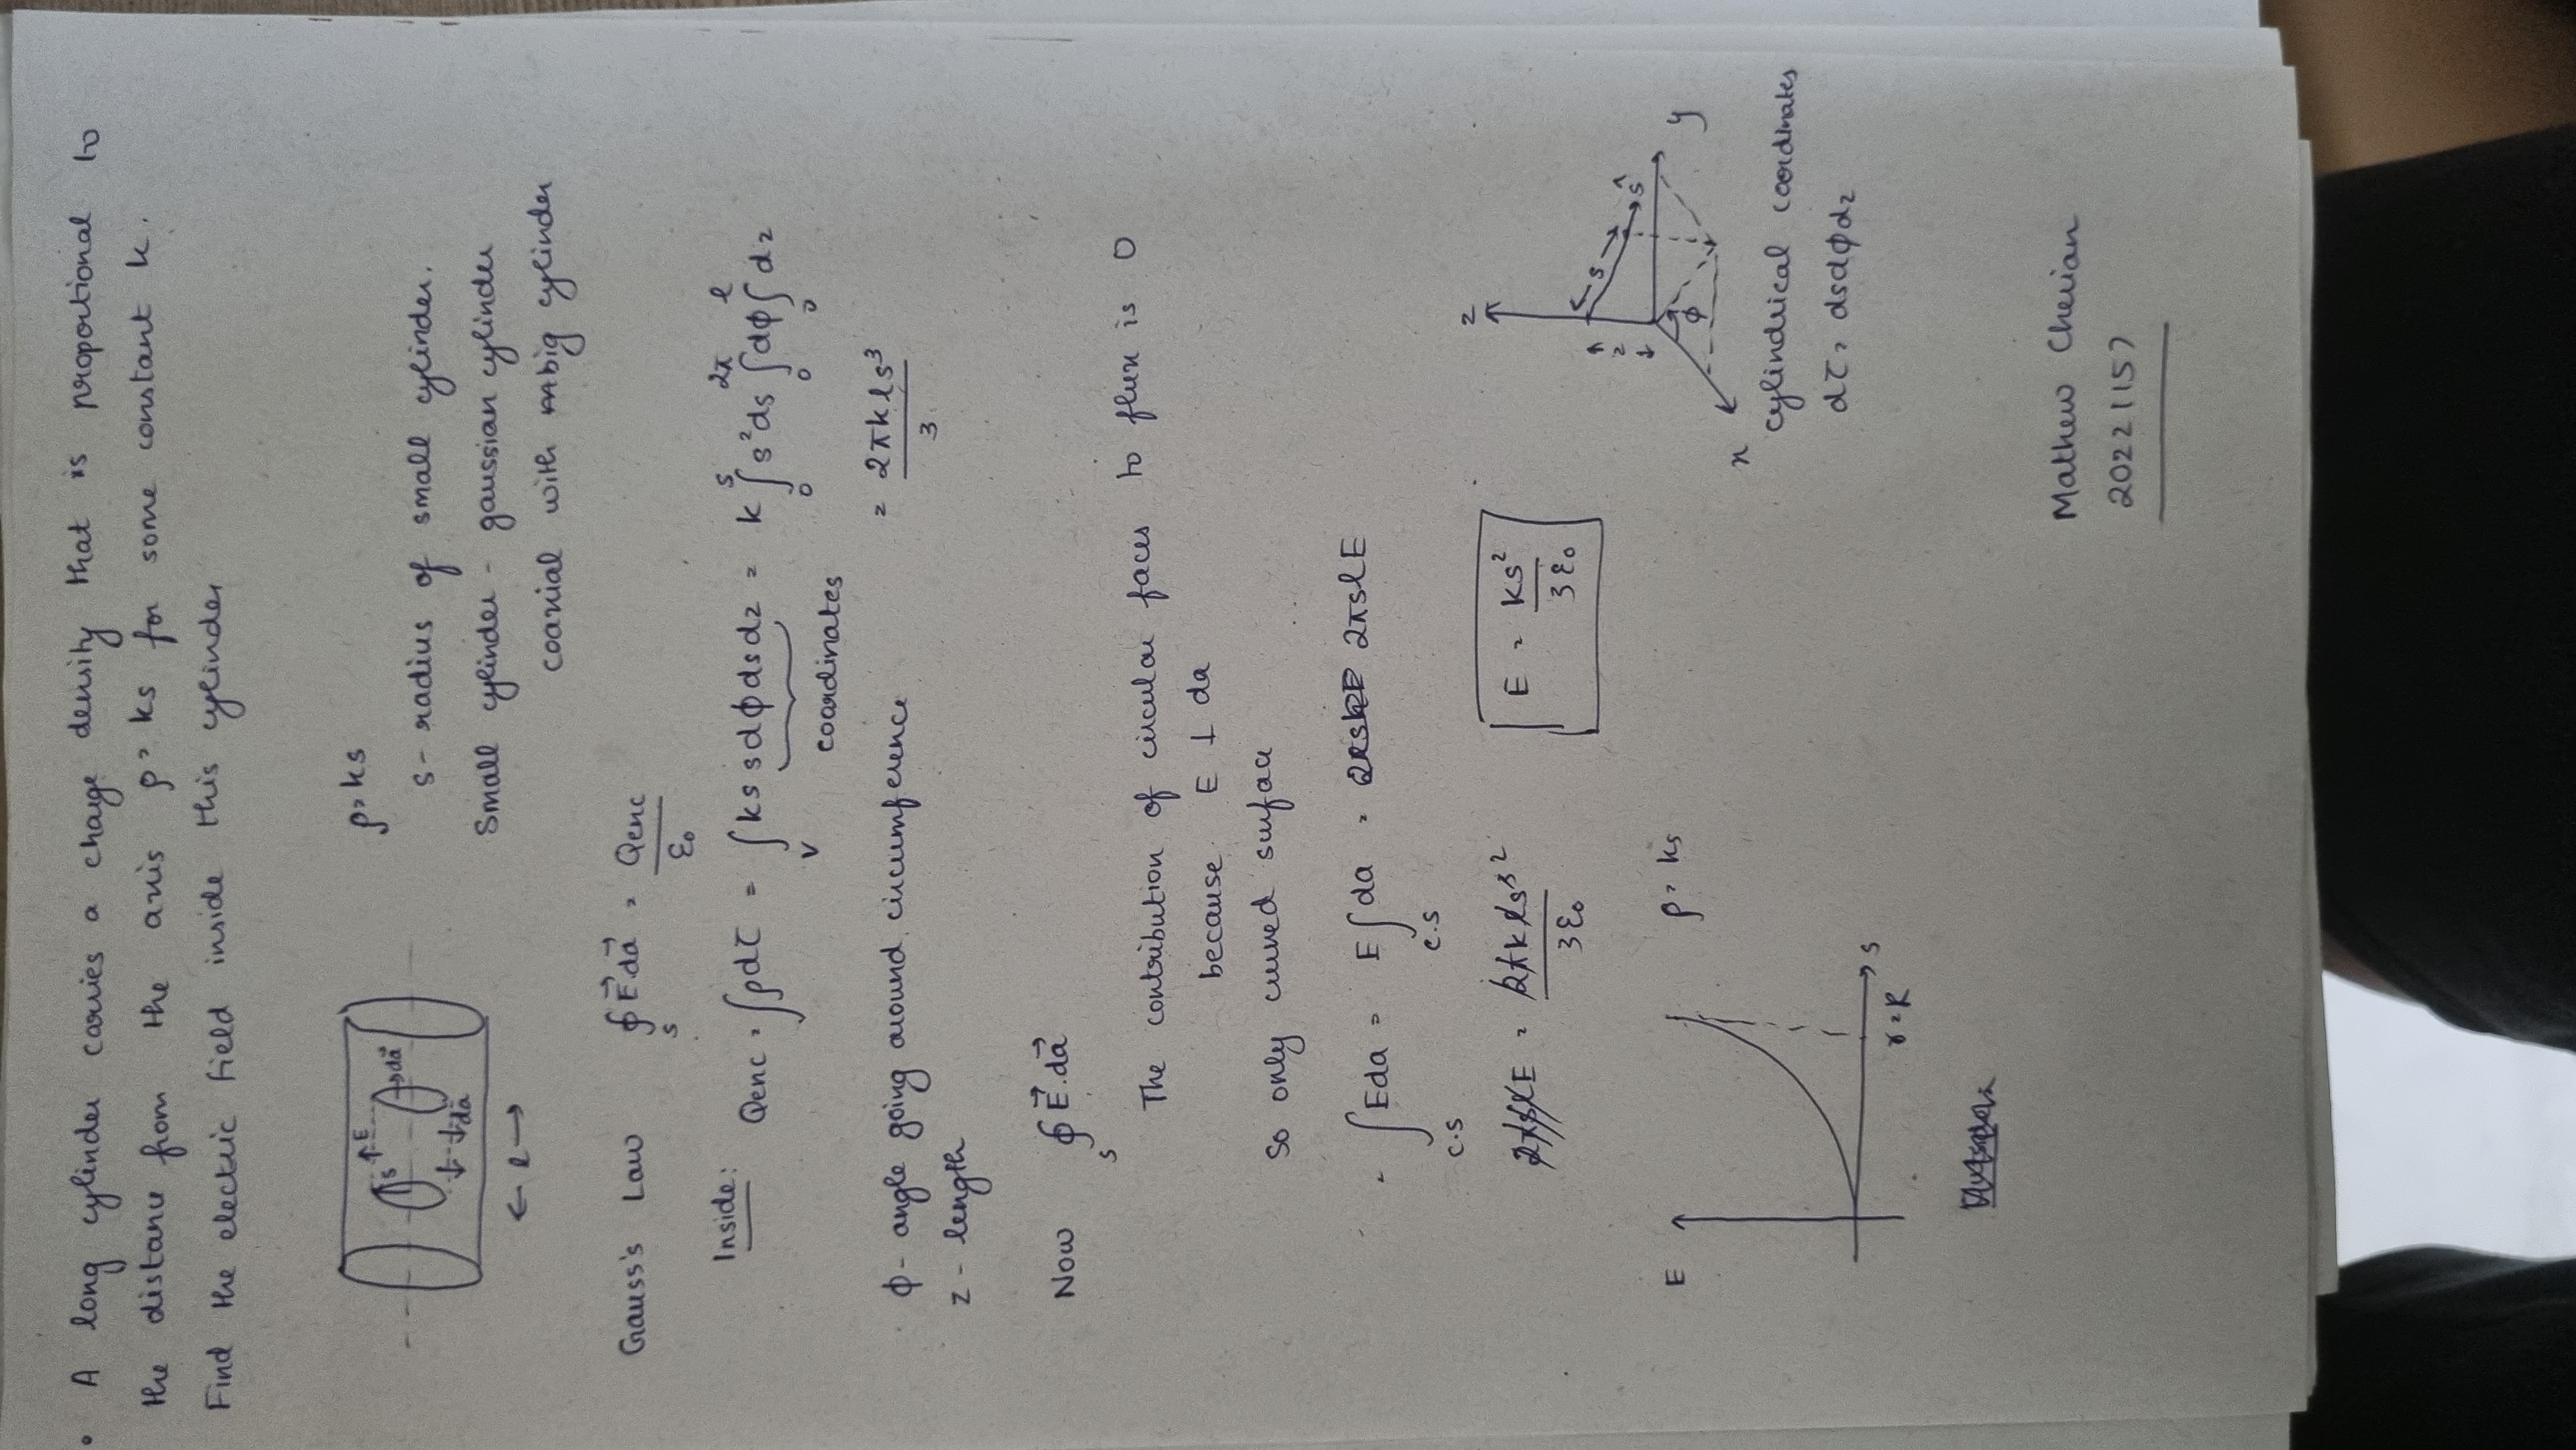 • A long cylinder carries a charge density that is proportional to
the distance from the axis ρ = ks for some constant k.
Find the electric field inside this cylinder
E
s
da⃗
da
← l →
ρ = ks
s - radius of small cylinder.
Small cylinder - gaussian cylinder
coaxial with big cylinder
Gauss's Law ∮_S E⃗.da⃗ = Qenc/ε₀
Inside:
Qenc = ∫ρdτ = ∫_V ks sdϕdsdz = k ∫₀^s s²ds ∫₀^2π dϕ ∫₀^l dz
coordinates
= 2πkls³/3
ϕ - angle going around circumference
z - length
Now ∮_S E⃗.da⃗
The contribution of circular faces to flux is 0
because E ⊥ da
So only curved surface
∫_C.S Eda = E∫_C.S da = 2πslE
2πslE = 2πkls³ ²/3ε₀
E = ks²/3ε₀
z
s
ŝ
z
ϕ
y
x
cylindrical coordinates
dτ = dsdϕdz
E
ρ = ks
s
r = R
Mathew Cherian
20221157